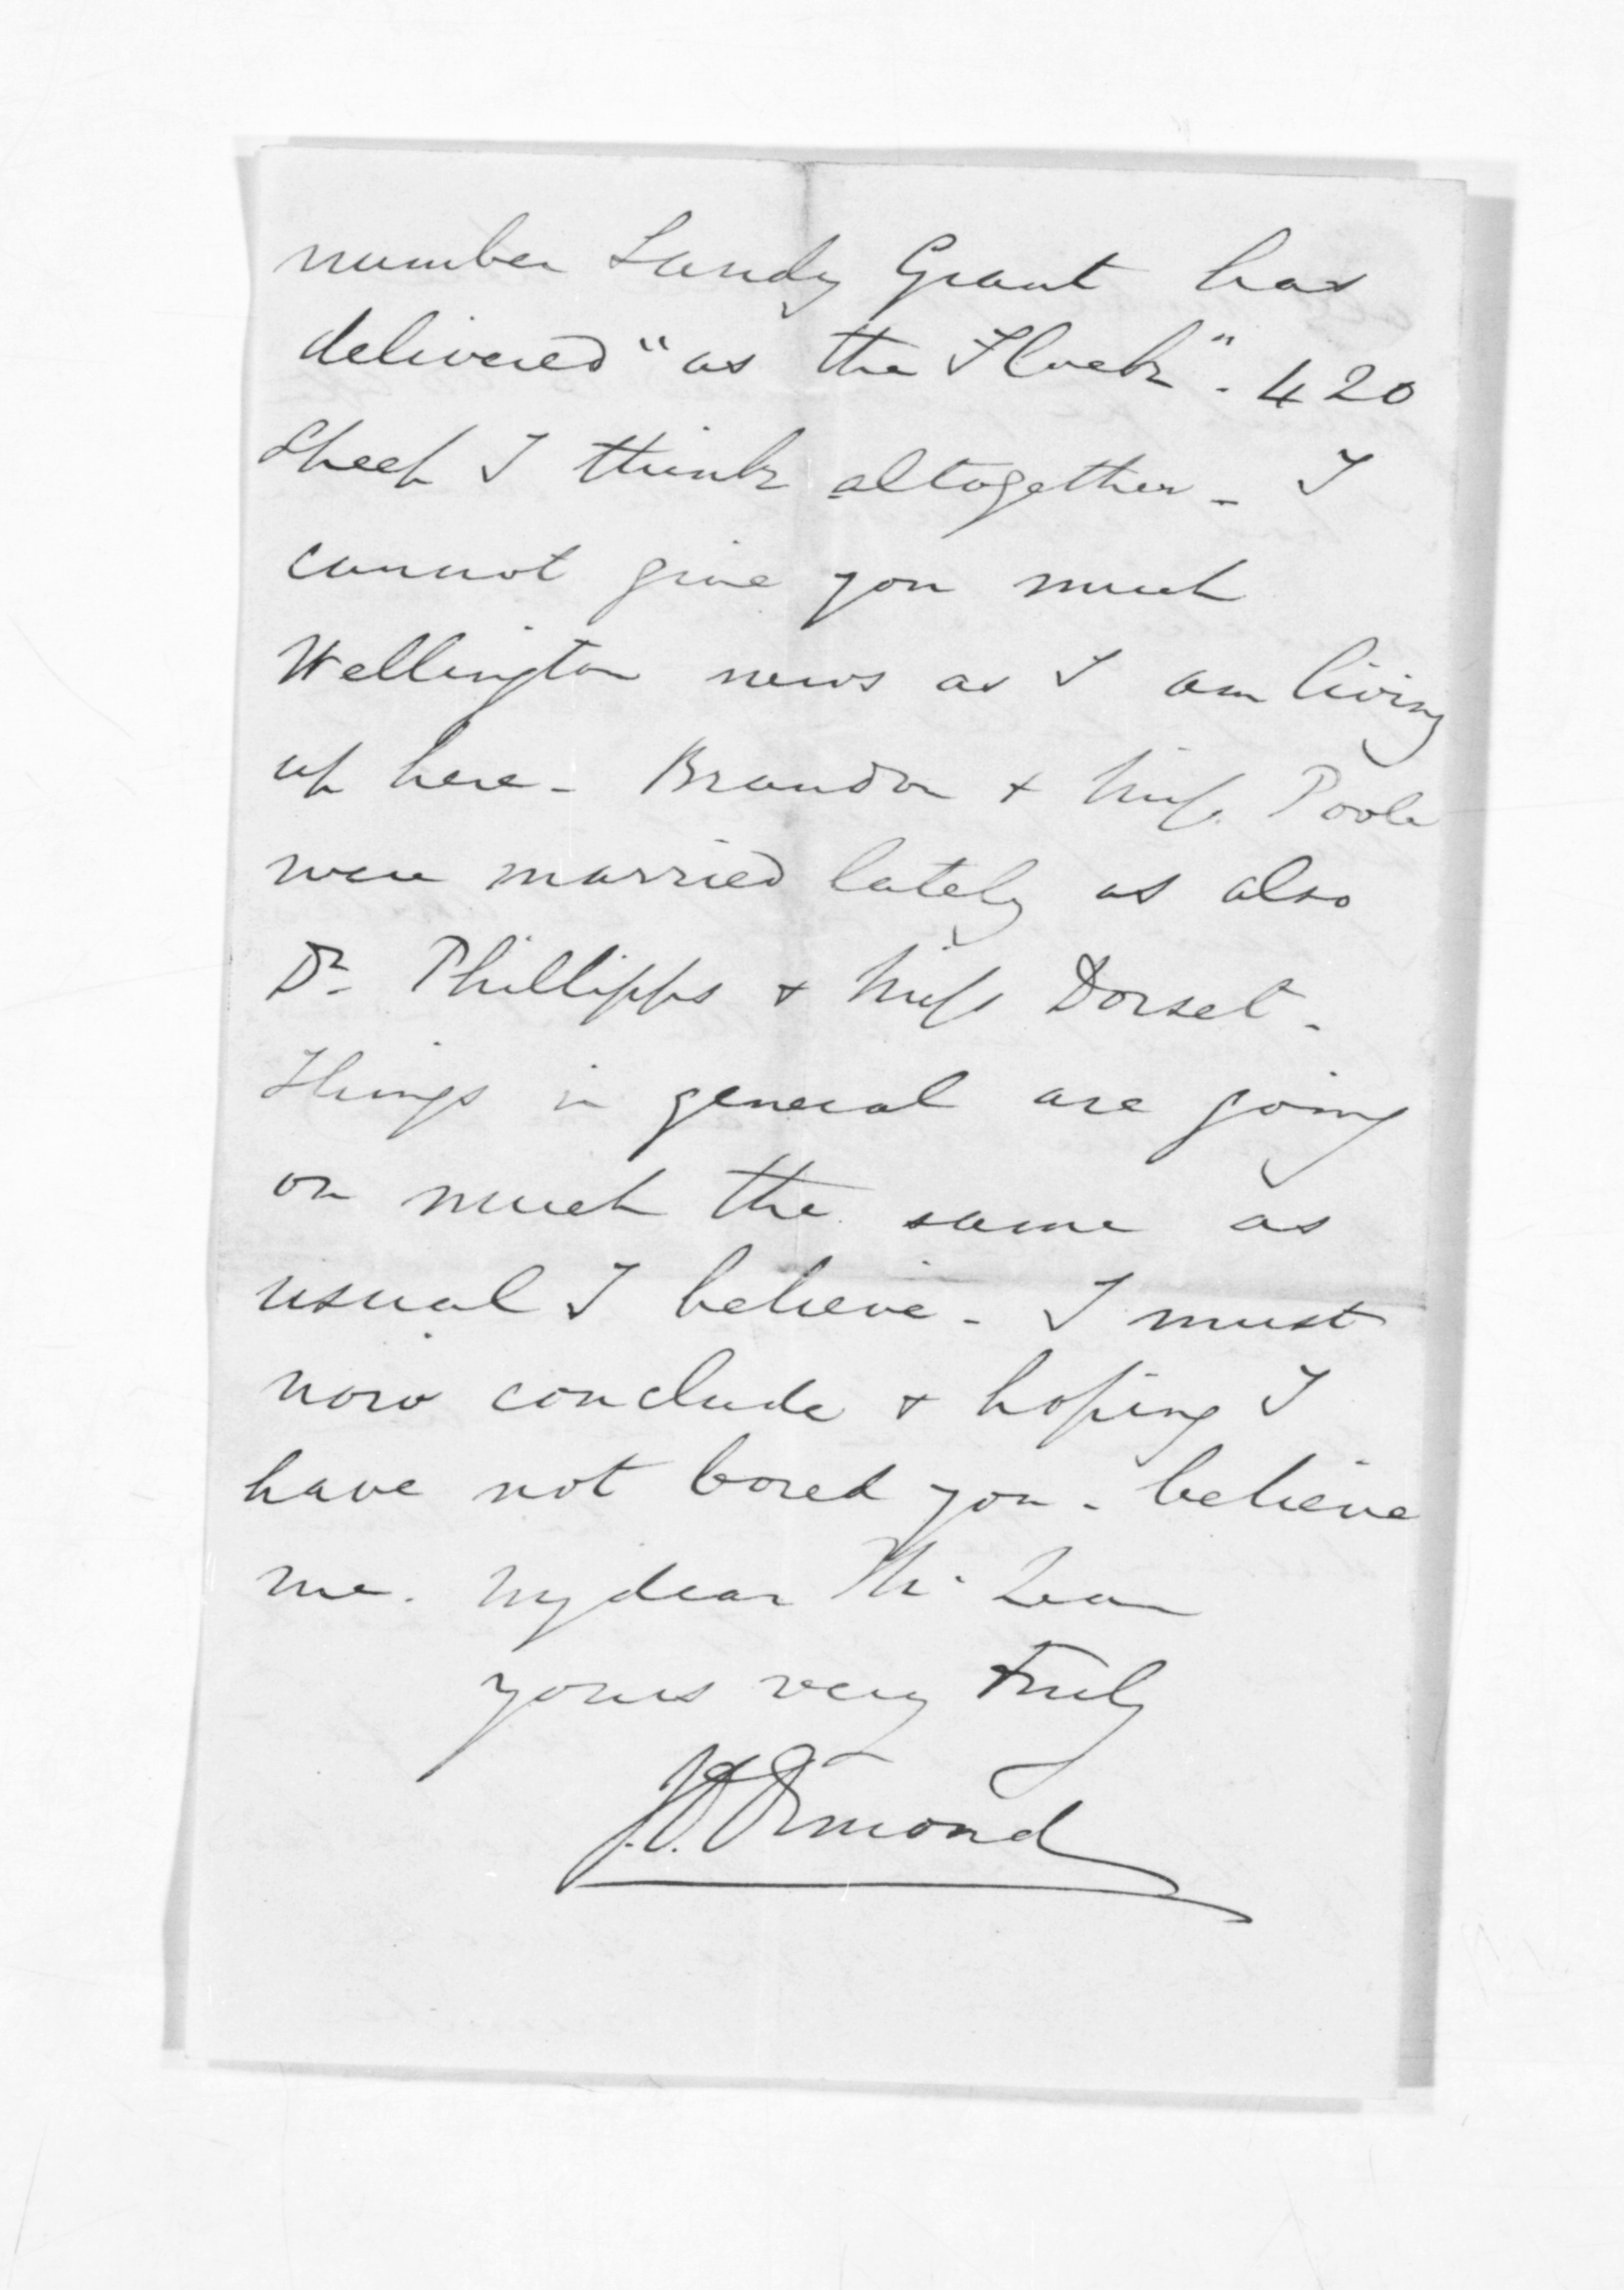 number Sandy Grant has
delivered "as the Flock". 420
Sheep I think altogether - I
cannot give you much
Wellington news as I am living
up here - Brandon + Miss Poole
were married lately as also
Dr. Phillipps + Miss Dorset.
Things in general are going
on much the same as
usual I believe - I must
now conclude + hoping I
have not bored you - believe
me. My dear Mc. Lean
yours very Truly
J.D. Ormond